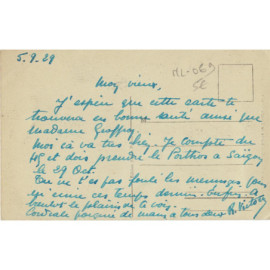 5.9.29
ML-069
5€
Mon vieux,
J'espère que cette carte te
trouvera en bonne santé ainsi que
madame
Moi ça va très bien. Je compte
et dois prendre le Porthos à Saïgon
le 29 Oct.
Tu ne t'es pas foulé les
ces temps derniers. Enfin
le plaisir de te voir.
Cordiale poignée de mains à tous deux